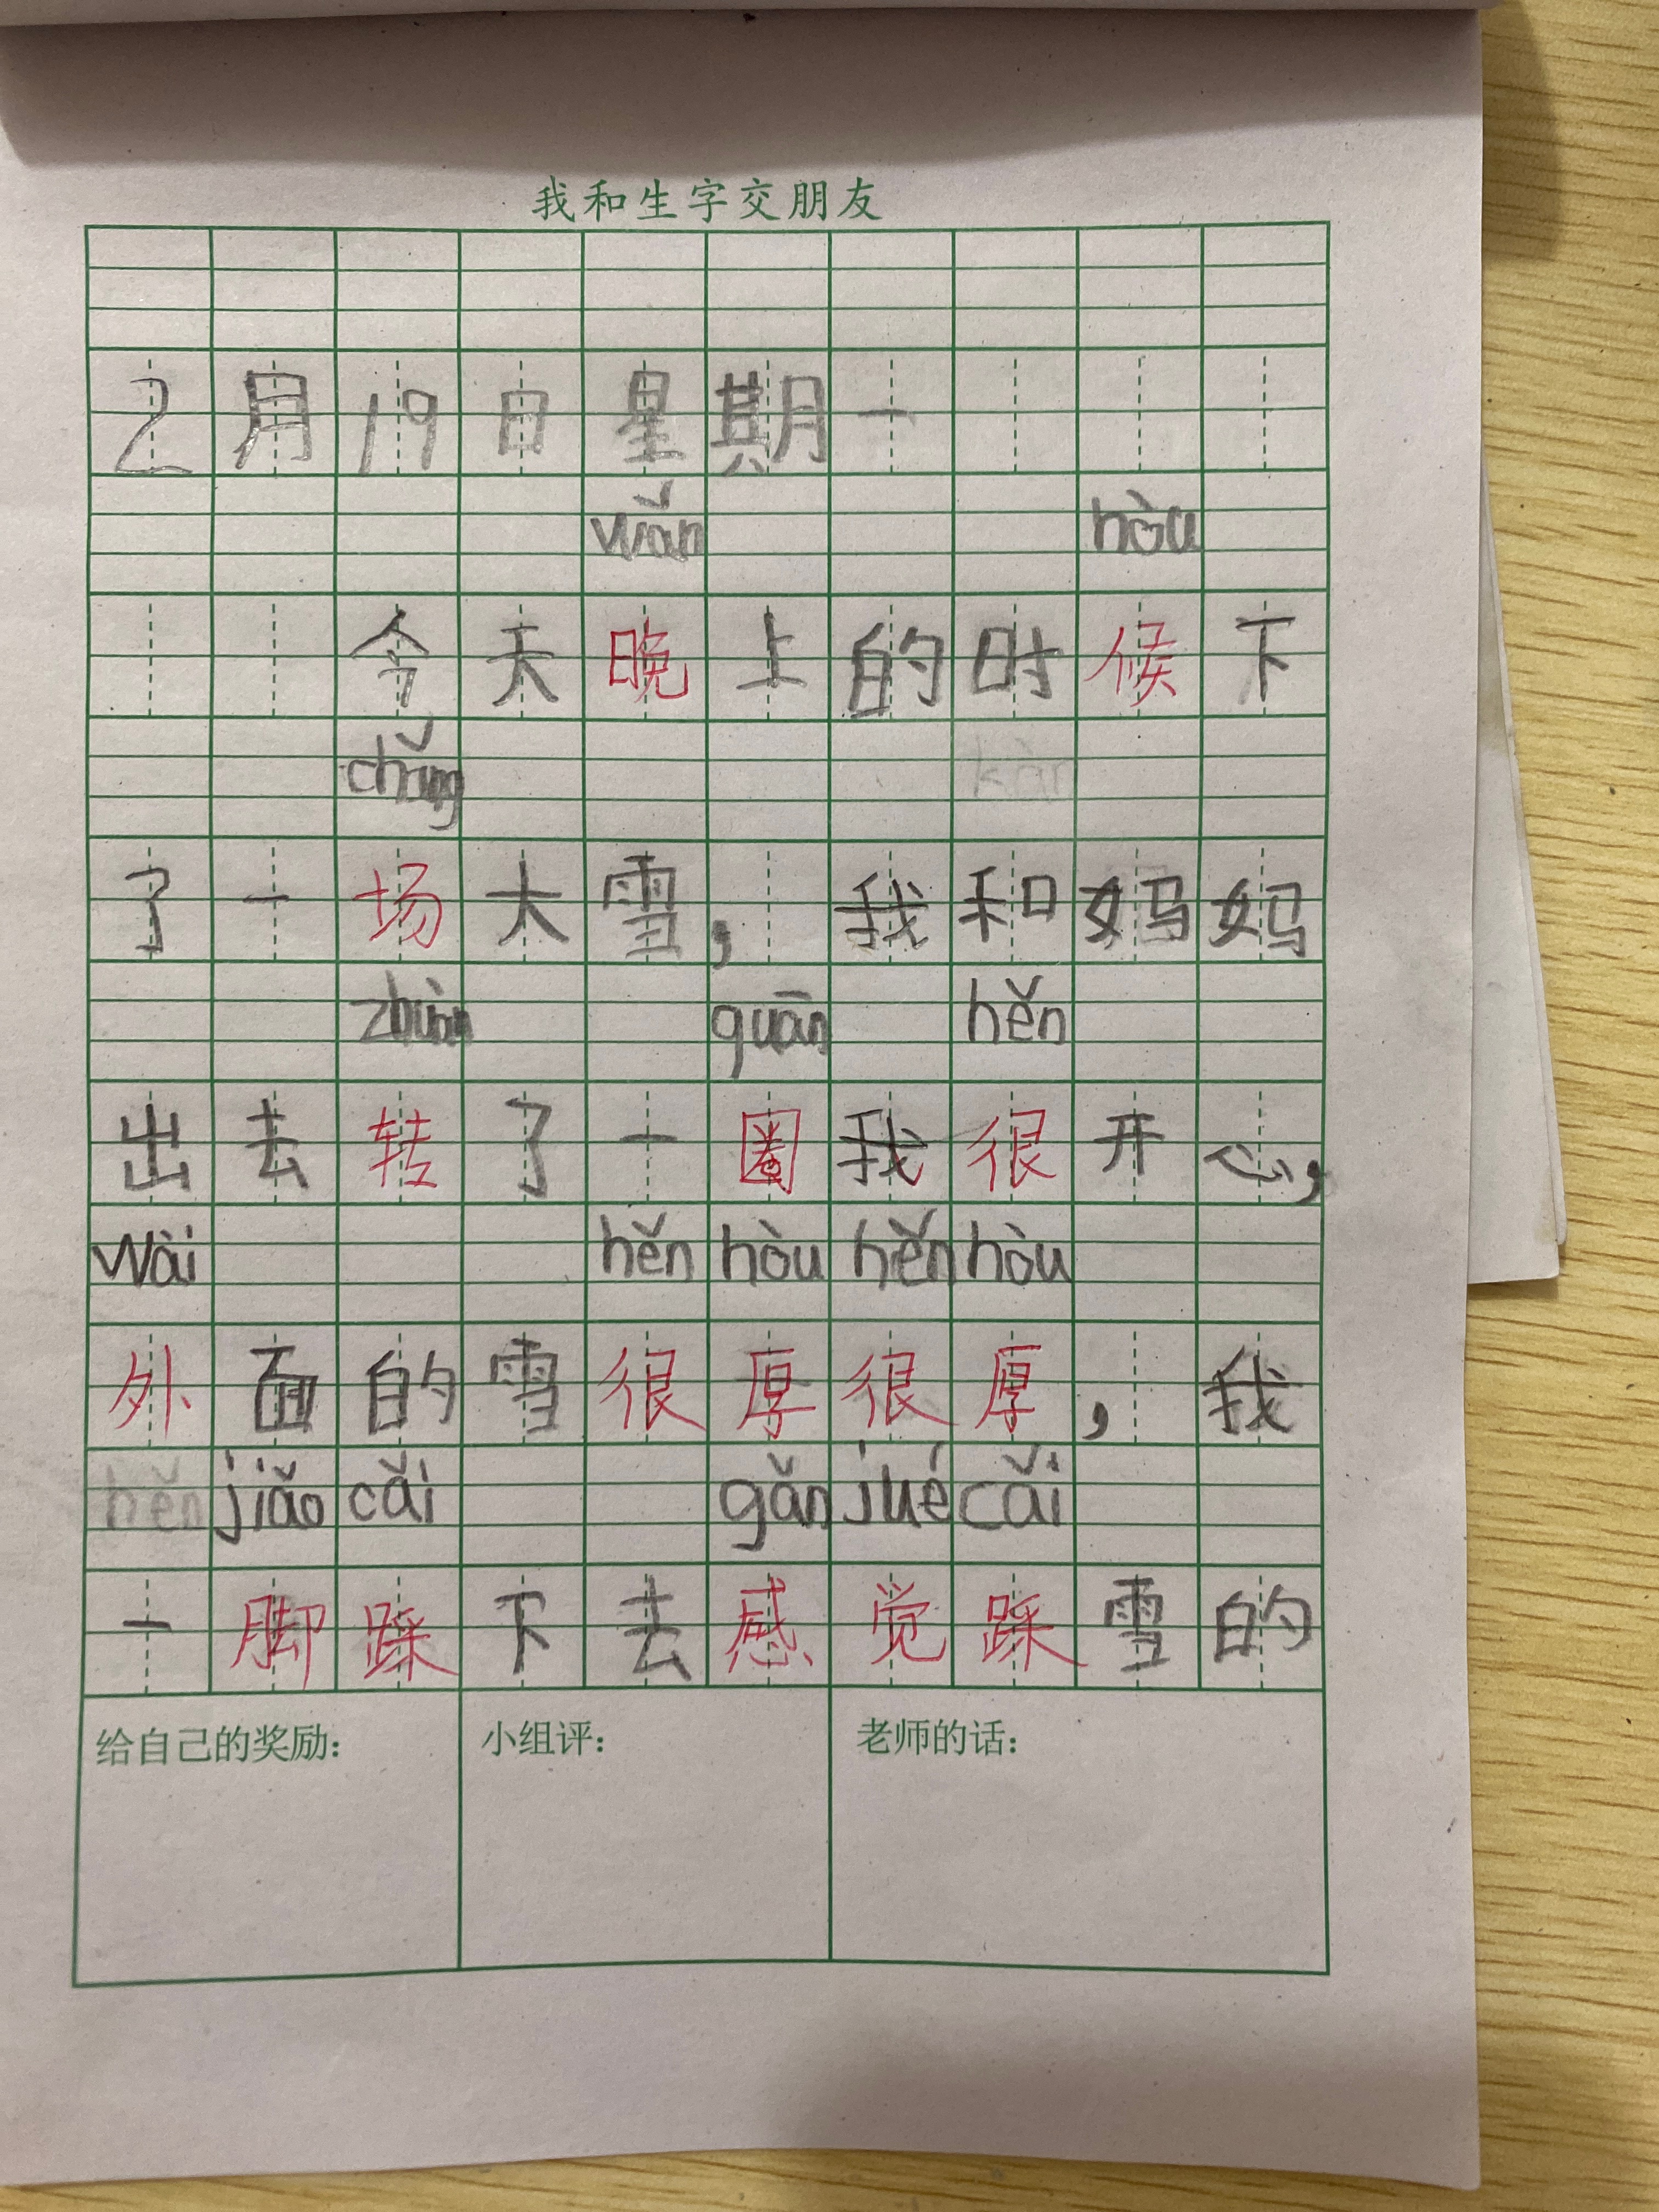 我和生字交朋友
2月19日星期一
wǎn hòu
今天晚上的时候下
chǎng
了一场大雪，我和妈妈
zhuàn quān hěn
出去转了一圈我很开心，
wài hěn hòu hěn hòu
外面的雪很厚很厚，我
hěn jiǎo cǎi gǎn jué cǎi
一脚踩下去感觉踩雪的
给自己的奖励： 小组评： 老师的话：